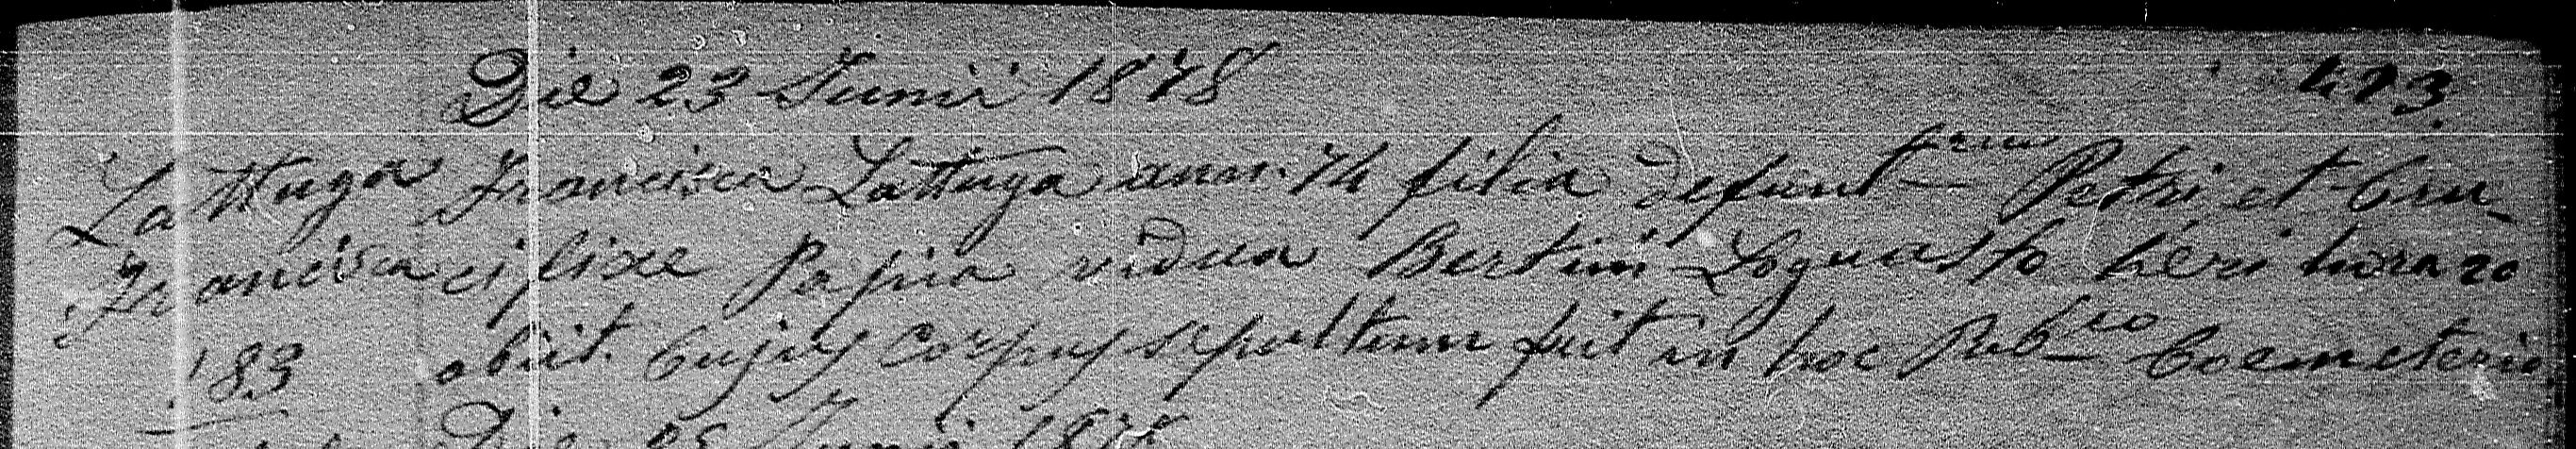 Die 23 Junii 1878
473.
Lattuga Francisca Lattuga ann. 74 filia defunct-orum Petri et Cru-
Francisca cifixae Papia vidua Bertini Loguasto heri hora 20
183 obiit. Cujus corpus sepultum fuit in hoc Pub-co Coemeterio
Die 25 Junii 1878